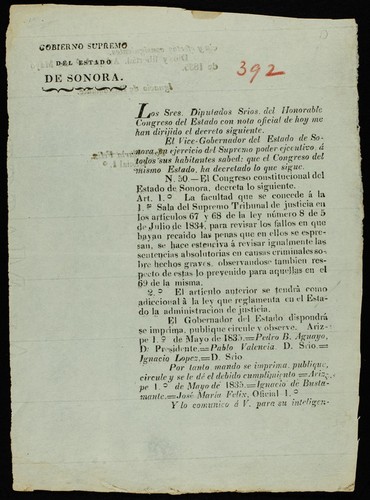 GOBIERNO SUPREMO
DEL ESTADO
DE SONORA.
392
Los Sres. Diputados Srios. del Honorable
Congreso del Estado con nota oficial de hoy me
han dirijido el decreto siguiente.
El Vice-Gobernador del Estado de So-
nora, en ejercicio del Supremo poder ejecutivo, á
todos sus habitantes sabed: que el Congreso del
mismo Estado, ha decretado lo que sigue.
N. 50.—El Congreso constitucional del
Estado de Sonora, decreta lo siguiente.
Art. 1.º La facultad que se concede á la
1.ª Sala del Supremo Tribunal de justicia en
los articulos 67 y 68 de la ley número 8 de 5
de Julio de 1834, para revisar los fallos en que
hayan recaido las penas que en ellos se espre-
san, se hace estenciva á revisar igualmente las
sentencias absolutorias en causas criminales so-
bre hechos graves, observandose tambien res-
pecto de estas lo prevenido para aquellas en el
69 de la misma.
2.º El articulo anterior se tendrá como
adiccional á la ley que reglamenta en el Esta-
do la administracion de justicia.
El Gobernador del Estado dispondrá
se imprima, publique circule y observe. Ariz-
pe 1.º de Mayo de 1835.=Pedro B. Aguayo,
D. Presidente.=Pablo Valencia. D. Srio.=
Ignacio Lopez,=D. Srio
Por tanto mando se imprima, publique,
circule y se le dé el debido cumplimiento=Ariz-
pe 1.º de Mayo de 1835.=Ignacio de Busta-
mante.=José María Felix, Oficial 1.º
Y lo comunico á V. para su inteligen-